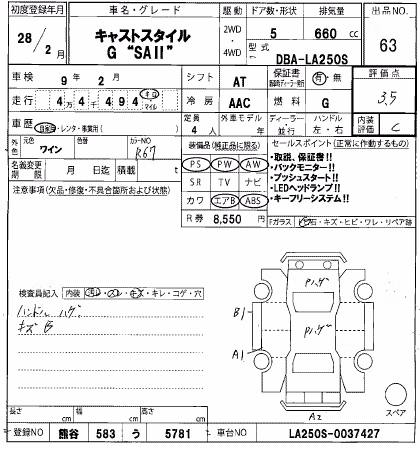 初度登録年月 車名・グレード 駆動 ドア数・形状 排気量 出品NO
28/2月 キャストスタイル G "SAⅡ" 2WD・4WD 5 660 cc 63
型式 DBA-LA250S
車検 9年 2月 シフト AT 保証書 有・無 評価点
走行 4万4千494 キロ マイル 冷房 AAC 燃料 G 3.5
車歴 自家用・レンタ・事業用( ) 定員 4人 外車モデル 年 ディーラー・並行 ハンドル 左・右 内装評価 C
外色 元色 ワイン 色替 カラーNO R67
装備品(純正品に限る) セールスポイント(正常に動作するもの)
名義変更期限 月 日迄 積載 t
PS PW AW
・取説、保証書!!
・バックモニター!!
注意事項(欠品・修復・不具合箇所および状態)
SR TV ナビ
・プッシュスタート!!
・LEDヘッドランプ!!
カワ エアB ABS
・キーフリーシステム!!
R券 8,550 円
Fガラス 飛石・キズ・ヒビ・ワレ・リペア跡
検査員記入 内装 汚レ・スレ・キズ・キレ・コゲ・穴
ハンドル ハゲ
キズB
Pハゲ
Pハゲ
B1
A1
A2
スペア
長さ cm 幅 cm 高さ cm
登録NO 熊谷 583 う 5781 車台NO LA250S-0037427